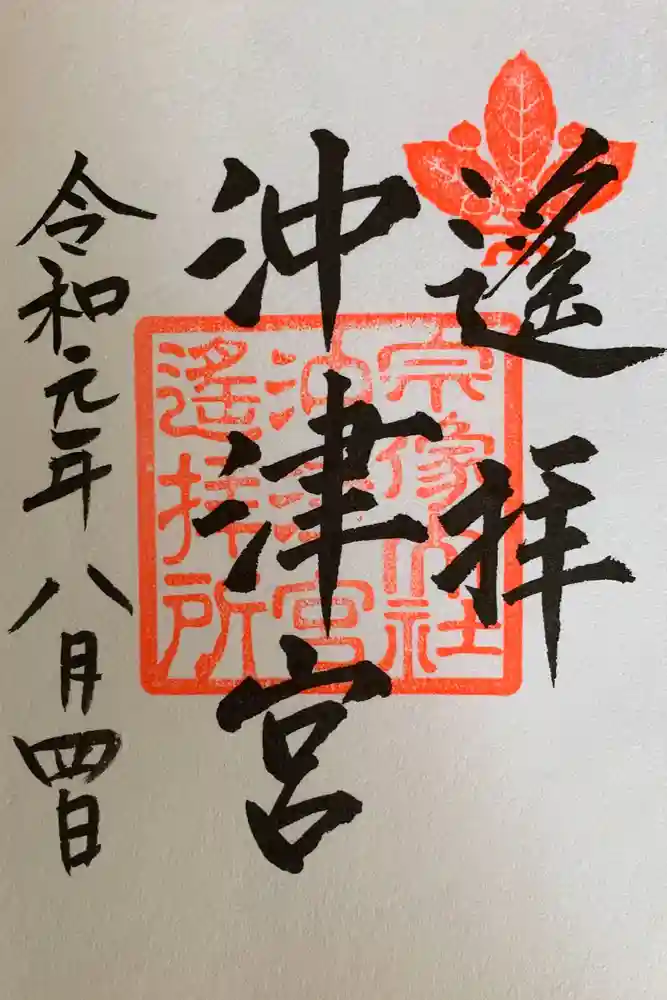 遥拝
沖津宮
令和元年八月四日
宗像大社
沖津宮
遙拝所